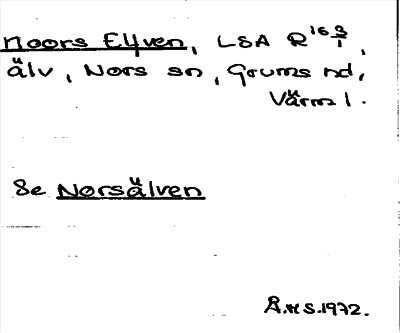 Noors Elfven, LSA R 16 9/1,
älv, Nors sn, Grums hd,
Värml.
Se Norsälven
Å.H S. 1972.